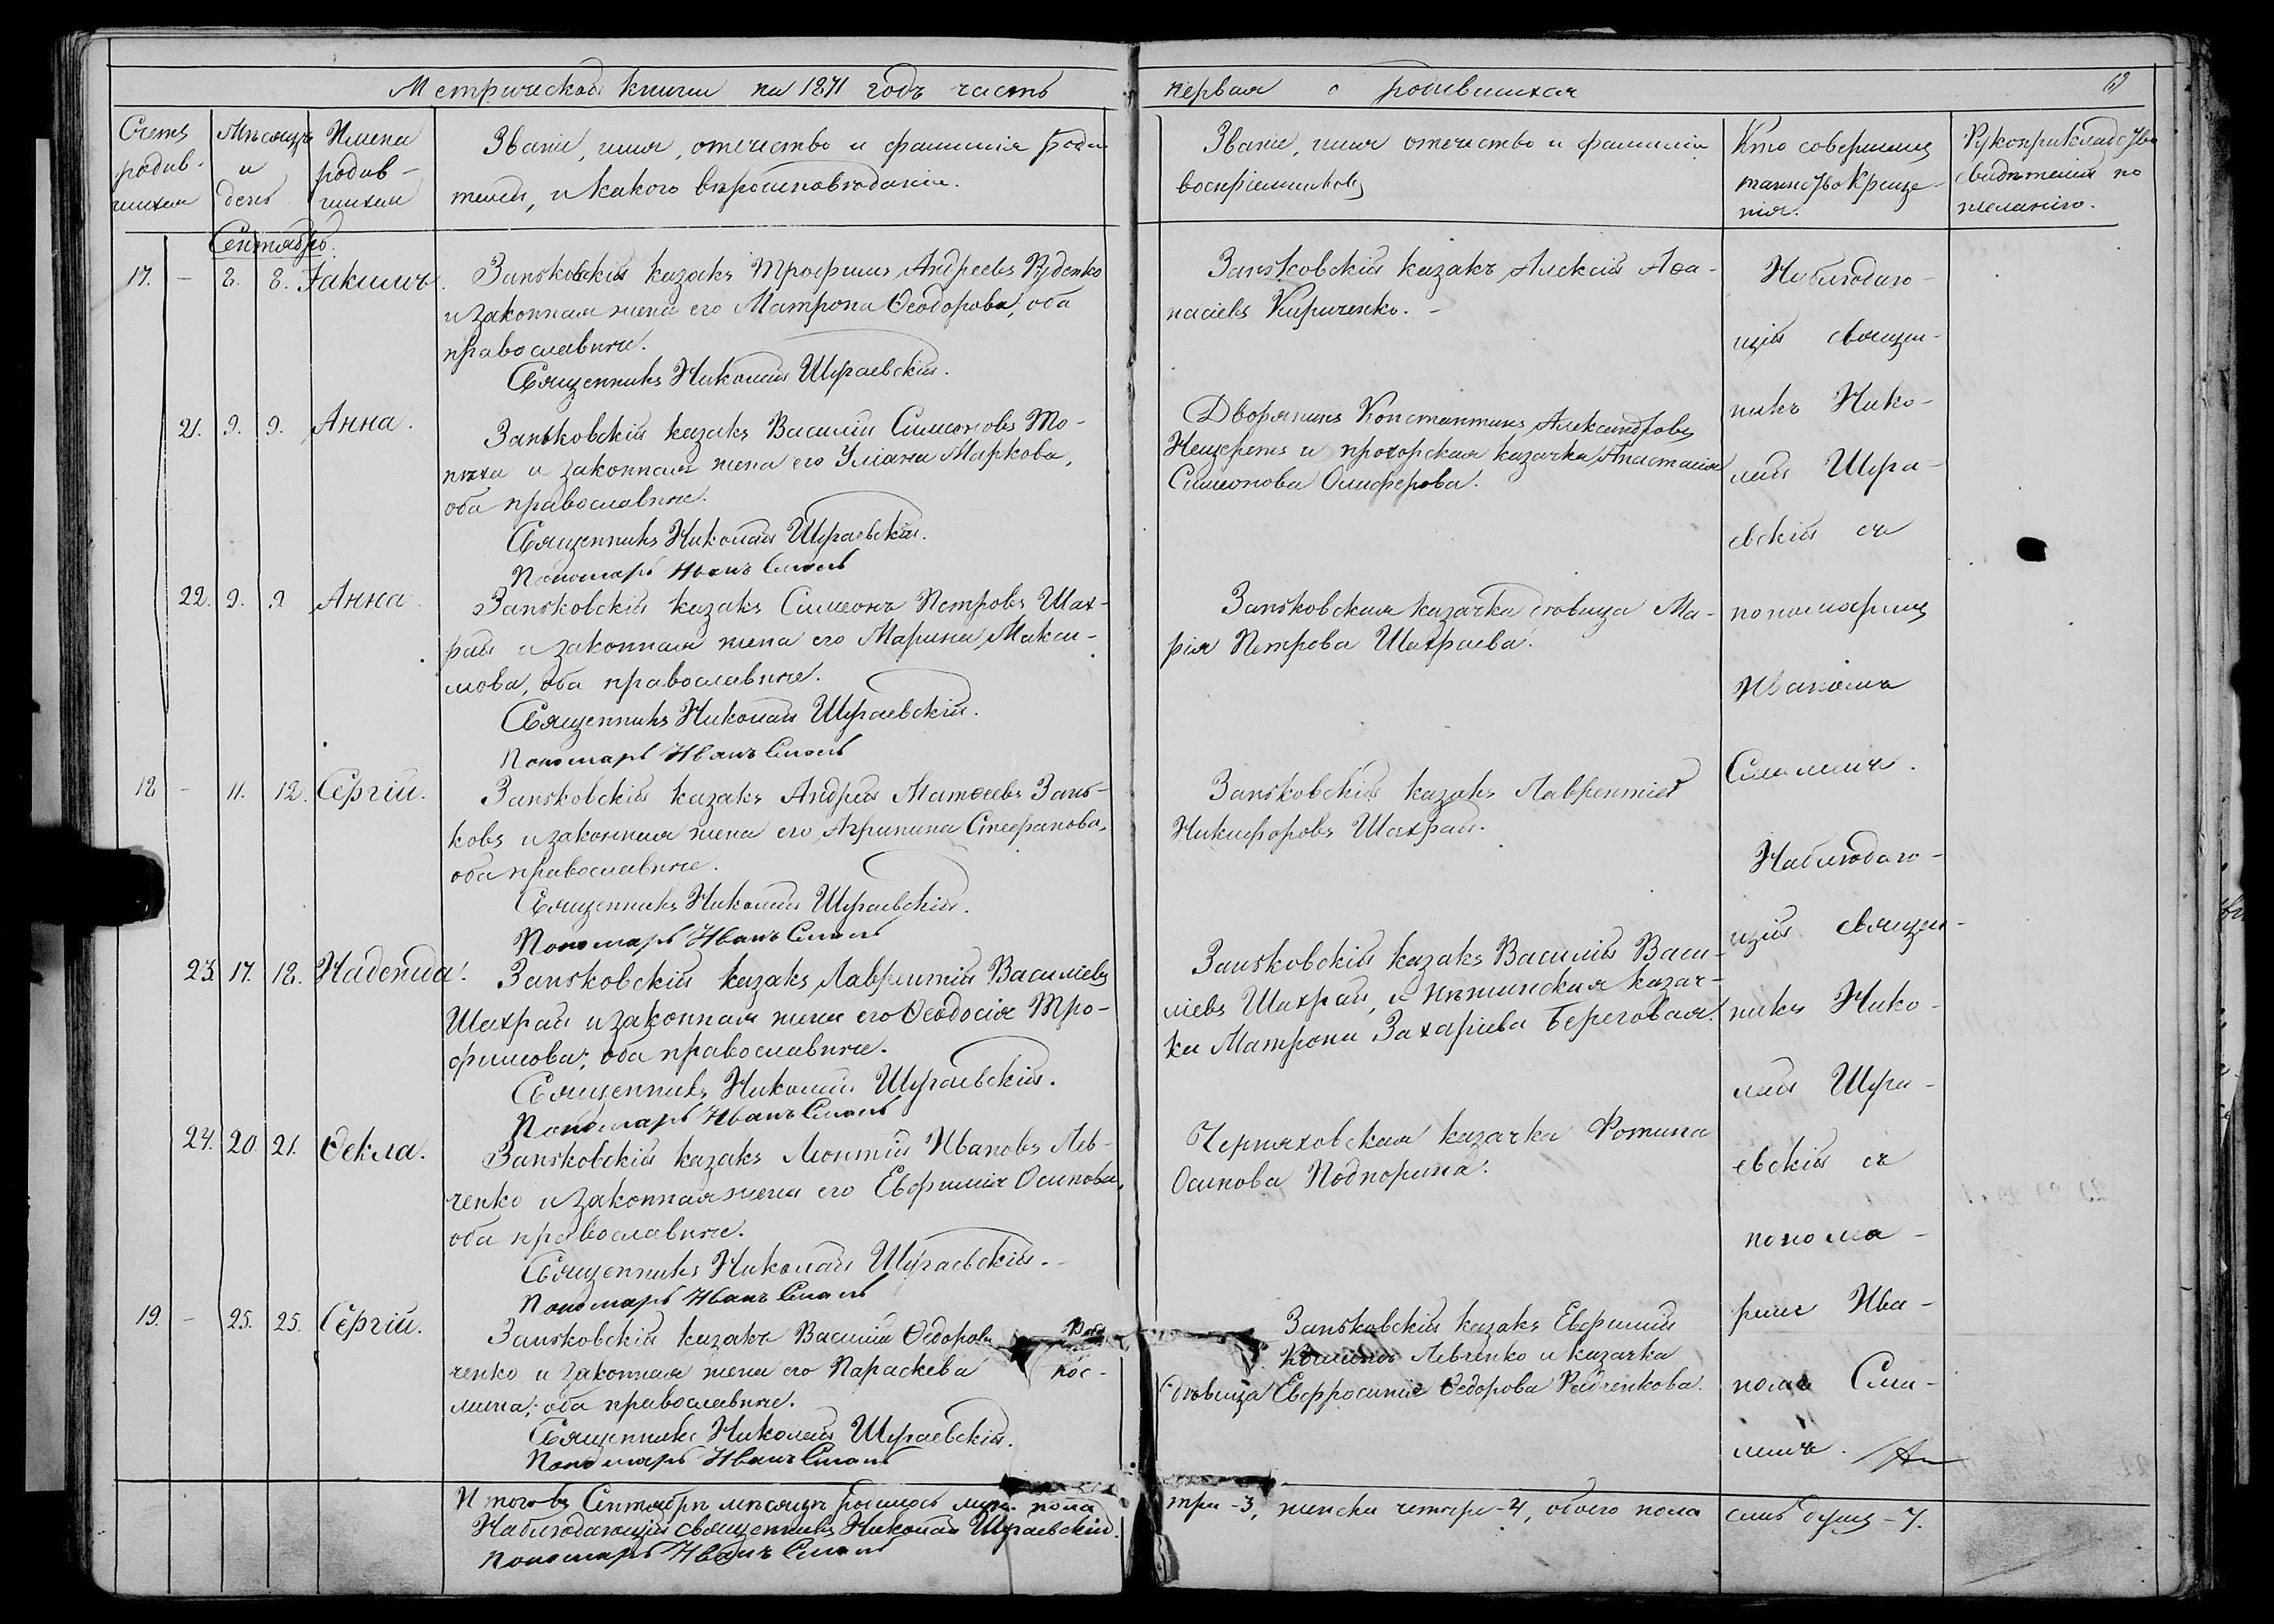 Метрической книги на 1871 годъ часть первая о родившихся
Счетъ родив-шихся
Мѣсяцъ и день
Имена родив-шихся
Званіе, имя, отечество и фамилія роди-
телей, и какого вѣроисповѣданія.
Званіе, имя отечество и фамилія
воспріемниковъ
Кто совершилъ
таинство Креще-
нія.
Рукоприкладство
свидѣтелей по
желанію.
Сентябрь.
17. - 8. 8. Іакимъ.
Заньковскій казакъ Трофимъ Андреевъ Руденко
и законная жена его Матрона Ѳеодорова, оба
православные.
Священникъ Николай Шураевскій.
Заньковскій казакъ Алексій Аѳа-
насіевъ Кириченко. -
21. 9. 9. Анна.
Заньковскій казакъ Василій Симеоновъ То-
пѣха и законная жена его Уліана Маркова,
оба православные.
Священникъ Николай Шураевскій.
Пономарь Иванъ Смолъ
Дворянинъ Константинъ Александровъ
Нещеретъ и прохорская казачка Анастасія
Симеонова Олиферова.
22. 9. 9 Анна.
Заньковскій казакъ Симеонъ Петровъ Шах-
рай и законная жена его Марина Макси-
мова, оба православные.
Священникъ Николай Шураевскій.
Пономарь Иванъ Смолъ
Заньковская казачка дѣвица Ма-
рія Петрова Шахраева.
18 - 11. 12. Сергій.
Заньковскій казакъ Андрей Матѳеевъ Зань-
ковъ и законная жена его Агрипина Стефанова,
оба православные.
Священникъ Николай Шураевскій.
Пономарь Иванъ Смолъ
Заньковскій казакъ Лаврентій
Никифоровъ Шахрай.
23. 17. 18. Надежда.
Заньковскій казакъ Лаврентій Василіевъ
Шахрай и законная жена его Ѳеодосія Тро-
фимова; оба православные.
Священникъ Николай Шураевскій.
Пономарь Иванъ Смолъ
Заньковскій казакъ Василій Васи-
ліевъ Шахрай, и нѣжинская казач-
ка Матрона Захаріева Береговая.
24. 20. 21. Ѳекла.
Заньковскій казакъ Леонтій Ивановъ Лев-
ченко и законная жена его Евфимія Осипова,
оба православные.
Священникъ Николай Шураевскій.
Пономарь Иванъ Смолъ
Черняховская казачка Фотина
Осипова Подпорина.
19. - 25. 25. Сергій.
Заньковскій казакъ Василій Ѳедоровъ
ченко и законная жена его Параскева Кос-
мина; оба православные.
Священникъ Николай Шураевскій.
Пономарь Иванъ Смолъ
Заньковскій казакъ Евфимій
Левченко и казачка
дѣвица Евфросинія Ѳедорова Радченкова.
Наблюдаю-
щій священ-
никъ Нико-
лай Шура-
евскій съ
пономаремъ
Иваномъ
Смоломъ.
Наблюдаю-
щій священ-
никъ Нико-
лай Шура-
евскій съ
понома-
ремъ Ива-
номъ Смо-
ломъ.
Итого въ Сентябрѣ мѣсяцѣ родилось муж. пола три - 3, женска четыре - 4, обоего пола семь душъ - 7.
Наблюдающій священникъ Николай Шураевскій.
Пономарь Иванъ Смолъ